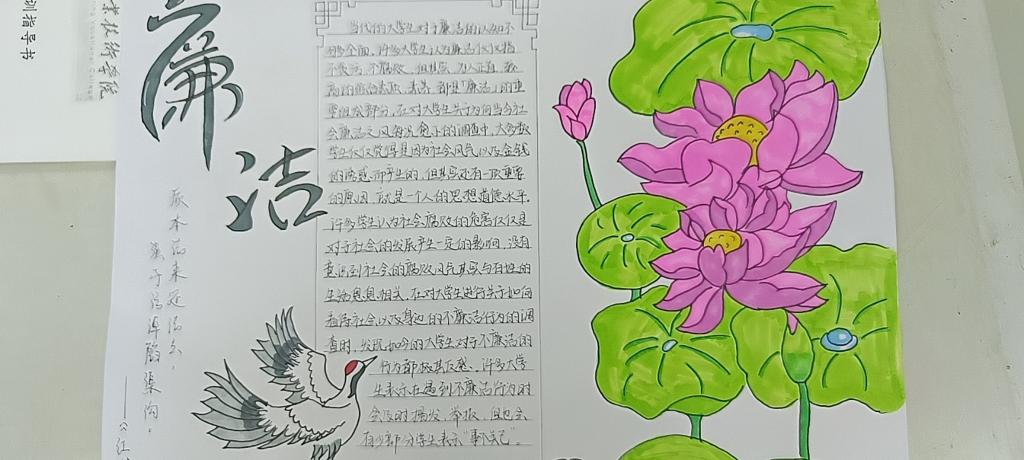 训指导书
业技术学院
廉洁
质本洁来还洁去，
强于污淖陷渠沟。
当代的大学生对于廉洁的认知不
够全面，许多大学生认为廉洁仅仅指
不贪污，不腐败，但其实，为人正直，较
高的政治素质、素养，都是「廉洁」的重
要组成部分，在对大学生关于如何当今社
会廉洁之风每况愈下的调查中，大多数
学生仅仅觉得是因为社会风气以及金钱
的诱惑而产生的，但其实还有一项重要
的原因，就是一个人的思想道德水平。
许多学生认为社会腐败的危害仅仅是
对于社会的发展产生一定的影响，没有
意识到社会的腐败风气其实与百姓的
生活息息相关，在对大学生进行关于如何
看待社会以及身边的不廉洁行为的调
查时，发现如今的大学生对于不廉洁的
行为都极其反感，许多大学
生表示在遇到不廉洁行为时
会及时揭发、举报，但也会
有少部分学生表示“事不关己”。